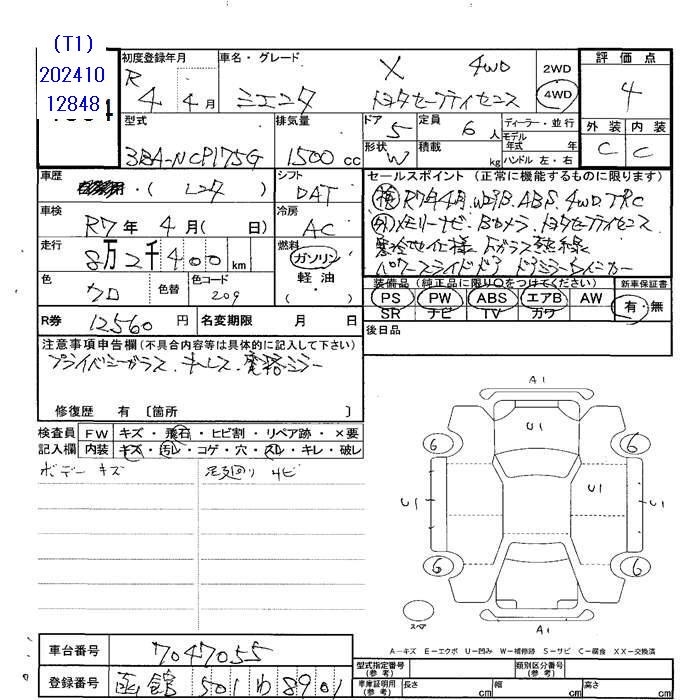 (T1)
202410
12848
初度登録年月
R 4年 4月
車名・グレード
X 4WD
ミエンタ トヨタセーフティセンス
2WD
4WD
評価点
4
外装 内装
C C
型式
3BA-NCP175G
排気量
1500 cc
ドア 5
定員 6人
形状 W
積載 kg
ディーラー・並行
モデル年式 年
ハンドル 左・右
車歴
・( レンタ )
シフト
DAT
車検
R7年 4月( 日)
冷房
AC
走行
8万2千400 km
燃料
ガソリン
軽油
・( )
色
クロ
色替
色コード
209
セールスポイント(正常に機能するものに限ります)
検 R7年4月. WエアB. ABS. 4WD. TRC
外 メモリーナビ. Bカメラ. トヨタセーフティセンス
寒冷地仕様 Fガラス熱線
パワースライドドア ドアミラーウインカー
装備品(純正品に限り○をつけてください)
PS PW ABS エアB AW
SR ナビ TV カワ
新車保証書
有・無
R券 12560円
名変期限 月 日
後日品
注意事項申告欄(不具合内容等は具体的に記入して下さい)
プライバシーガラス. キーレス. 電格ミラー
修復歴 有〔箇所 〕
検査員記入欄
FW キズ・飛石・ヒビ割・リペア跡・×要
内装 キズ・汚レ・コゲ・穴・スレ・キレ・破レ
ボデー キズ
足廻り サビ
A1
U1
6 6
U1 U1 U1
6 6
スペア
A1
A－キズ E－エクボ U－凹み W－補修跡 S－サビ C－腐食 XX－交換済
車台番号 7047055
登録番号 函館 501 わ 8901
型式指定番号(参考)
類別区分番号(参考)
車庫証明用(参考) 長さ cm 幅 cm 高さ cm